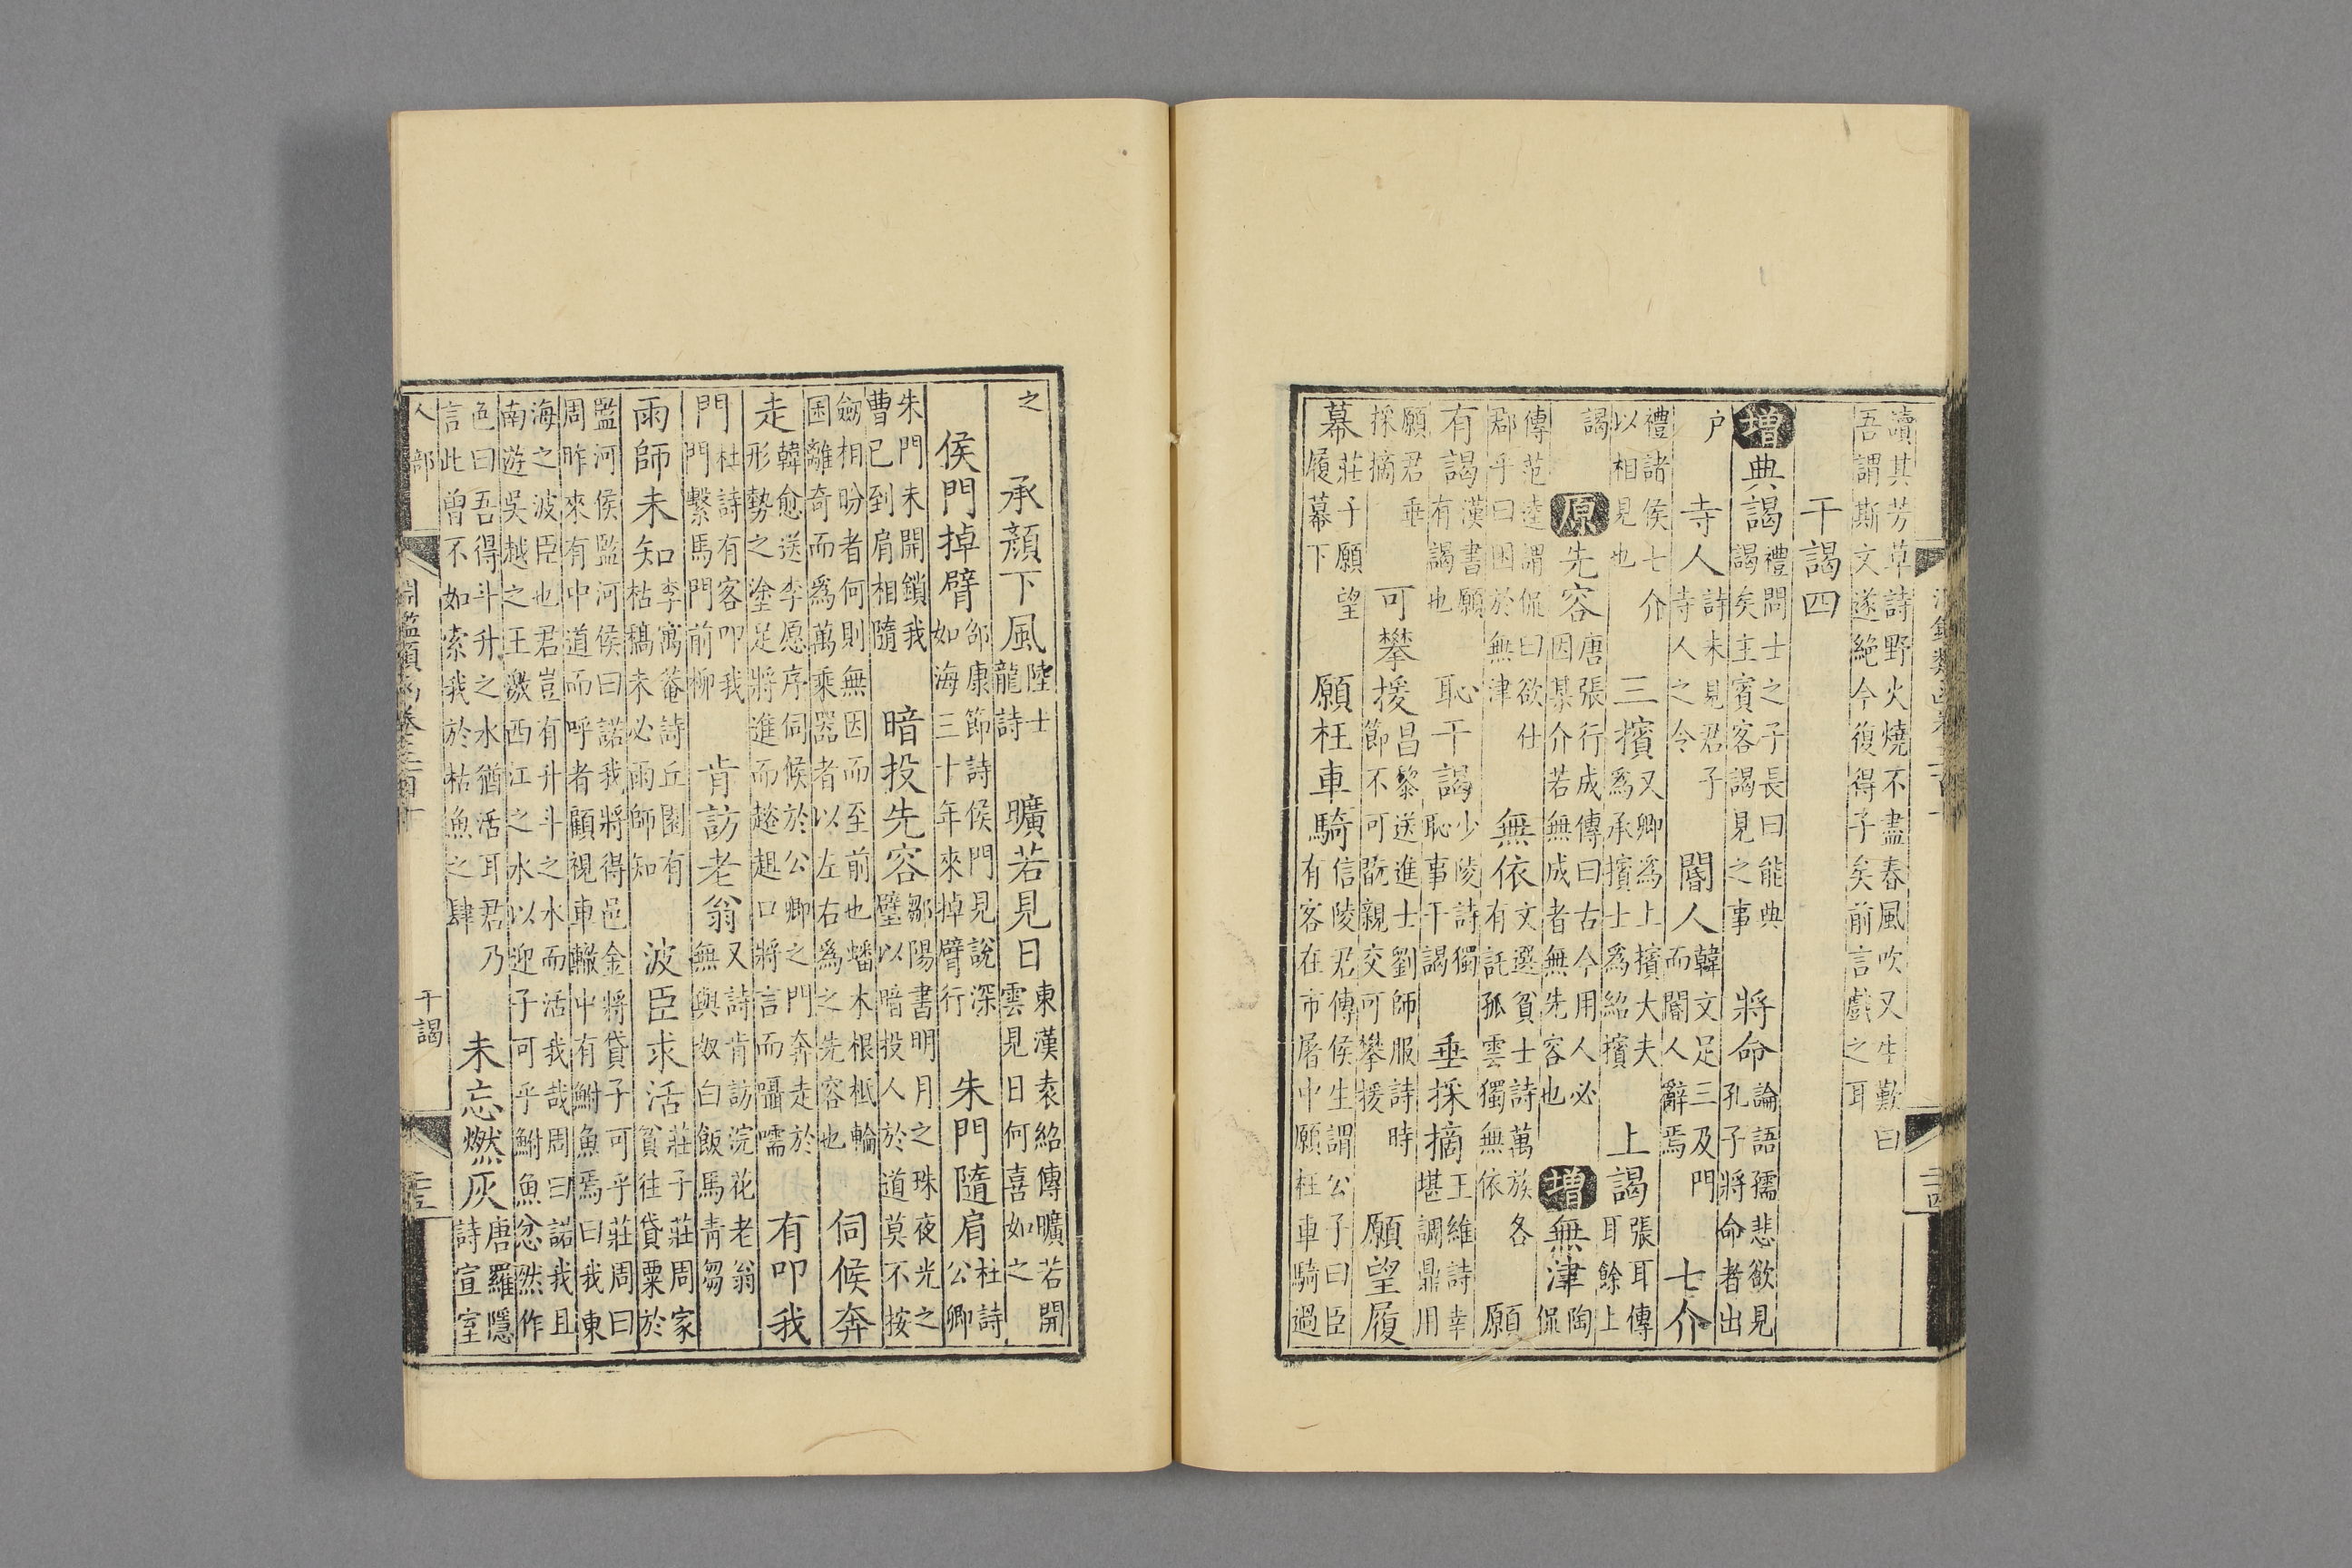 讀其芳草詩野火燒不盡春風吹又生歎曰吾謂斯文遂絶今復得子矣前言戲之耳
干謁四
增典謁禮問士之子長曰能典謁矣主賓客謁見之事將命論語孺悲欲見孔子將命者出
户寺人詩未見君子寺人之令閽人韓文足三及門而閽人辭焉七介
禮諸侯七介以相見也三擯又卿爲上擯大夫爲承擯士爲紹擯上謁張耳傳耳餘上
謁原先容唐張行成傳曰古今用人必因媒介若無成者無先容也增無津陶侃
傳范逵謂侃曰欲仕郡乎曰困於無津無依文選貧士詩萬族各有託孤雲獨無依願
有謁漢書願有謁也恥干謁少陵詩獨恥事干謁垂採摘王維詩幸堪調鼎用
願君垂採摘可攀援昌黎送進士劉師服詩時節不可翫親交可攀援願望履
幕莊子願望履幕下願枉車騎信陵君傳侯生謂公子曰臣有客在市屠中願枉車騎過
之承顏下風陸士龍詩曠若見日東漢袁紹傳曠若開雲見日何喜如之
侯門掉臂邵康節詩侯門見說深如海三十年來掉臂行朱門隨肩杜詩公卿
朱門未開鎖我曹已到肩相隨暗投先容鄒陽書明月之珠夜光之璧以暗投人於道莫不按
劒相盼者何則無因而至前也蟠木根柢輪囷離奇而爲萬乘器者以左右爲之先容也伺候奔
走韓愈送李愿序伺候於公卿之門奔走於形勢之塗足將進而趑趄口將言而囁嚅有叩我
門杜詩有客叩我門繫馬門前柳肯訪老翁又詩肯訪浣花老翁無與奴白飯馬青芻
雨師未知李寓菴詩丘園有枯槁未必雨師知波臣求活莊子莊周家貧往貸粟於
監河侯監河侯曰諾我將得邑金將貸子可乎莊周曰周昨來有中道而呼者顧視車轍中有鮒魚焉曰我東
海之波臣也君豈有升斗之水而活我哉周曰諾我且南遊吳越之王激西江之水以迎子可乎鮒魚忿然作
色曰吾得斗升之水猶活耳君乃言此曾不如索我於枯魚之肆未忘燃灰唐羅隱詩宣室
人部
干謁